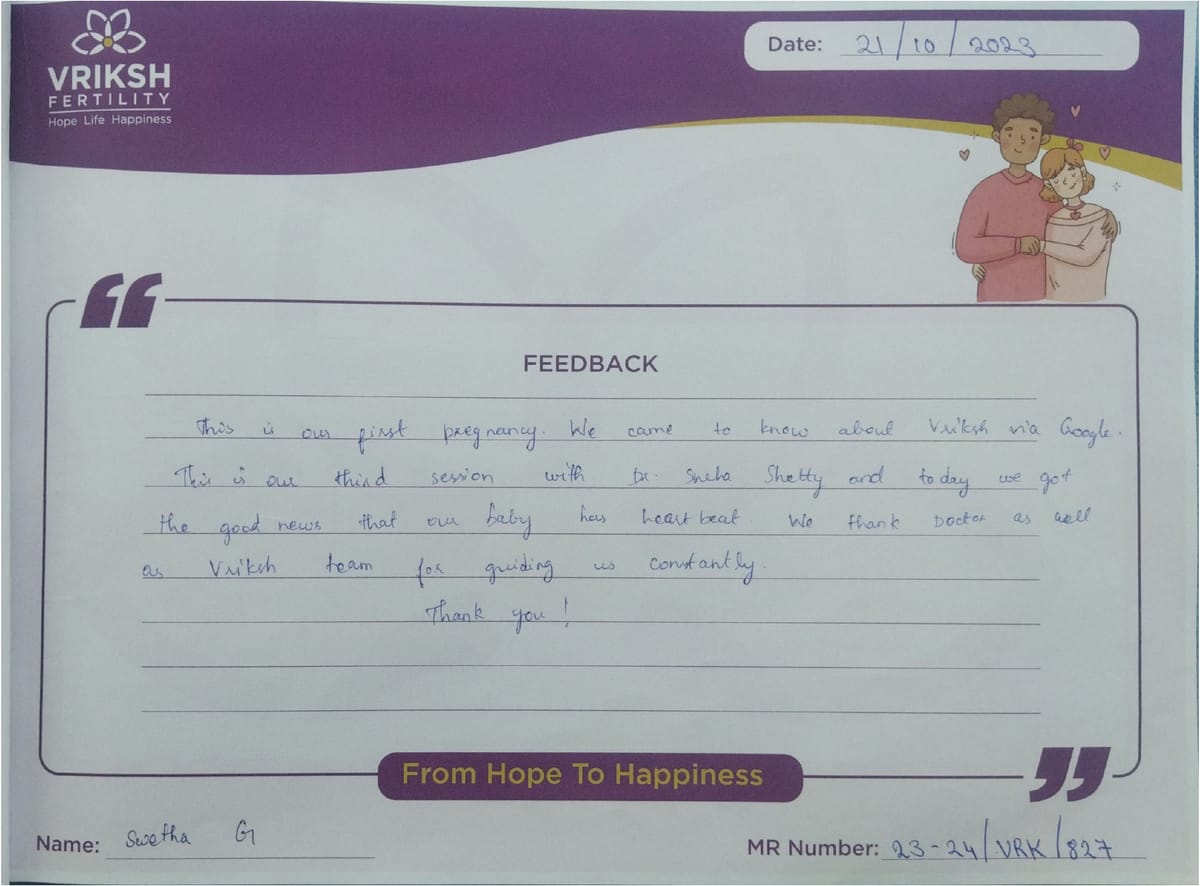 VRIKSH
FERTILITY
Hope Life Happiness
Date: 21/10/2023
FEEDBACK
This is our first pregnancy. We came to know about Vriksh via Google.
This is our third session with Dr. Sneha Shetty and today we got
the good news that our baby has heart beat. We thank Doctor as well
as Vriksh team for guiding us constantly.
Thank you!
From Hope To Happiness
Name: Swetha G
MR Number: 23-24/VRK/827